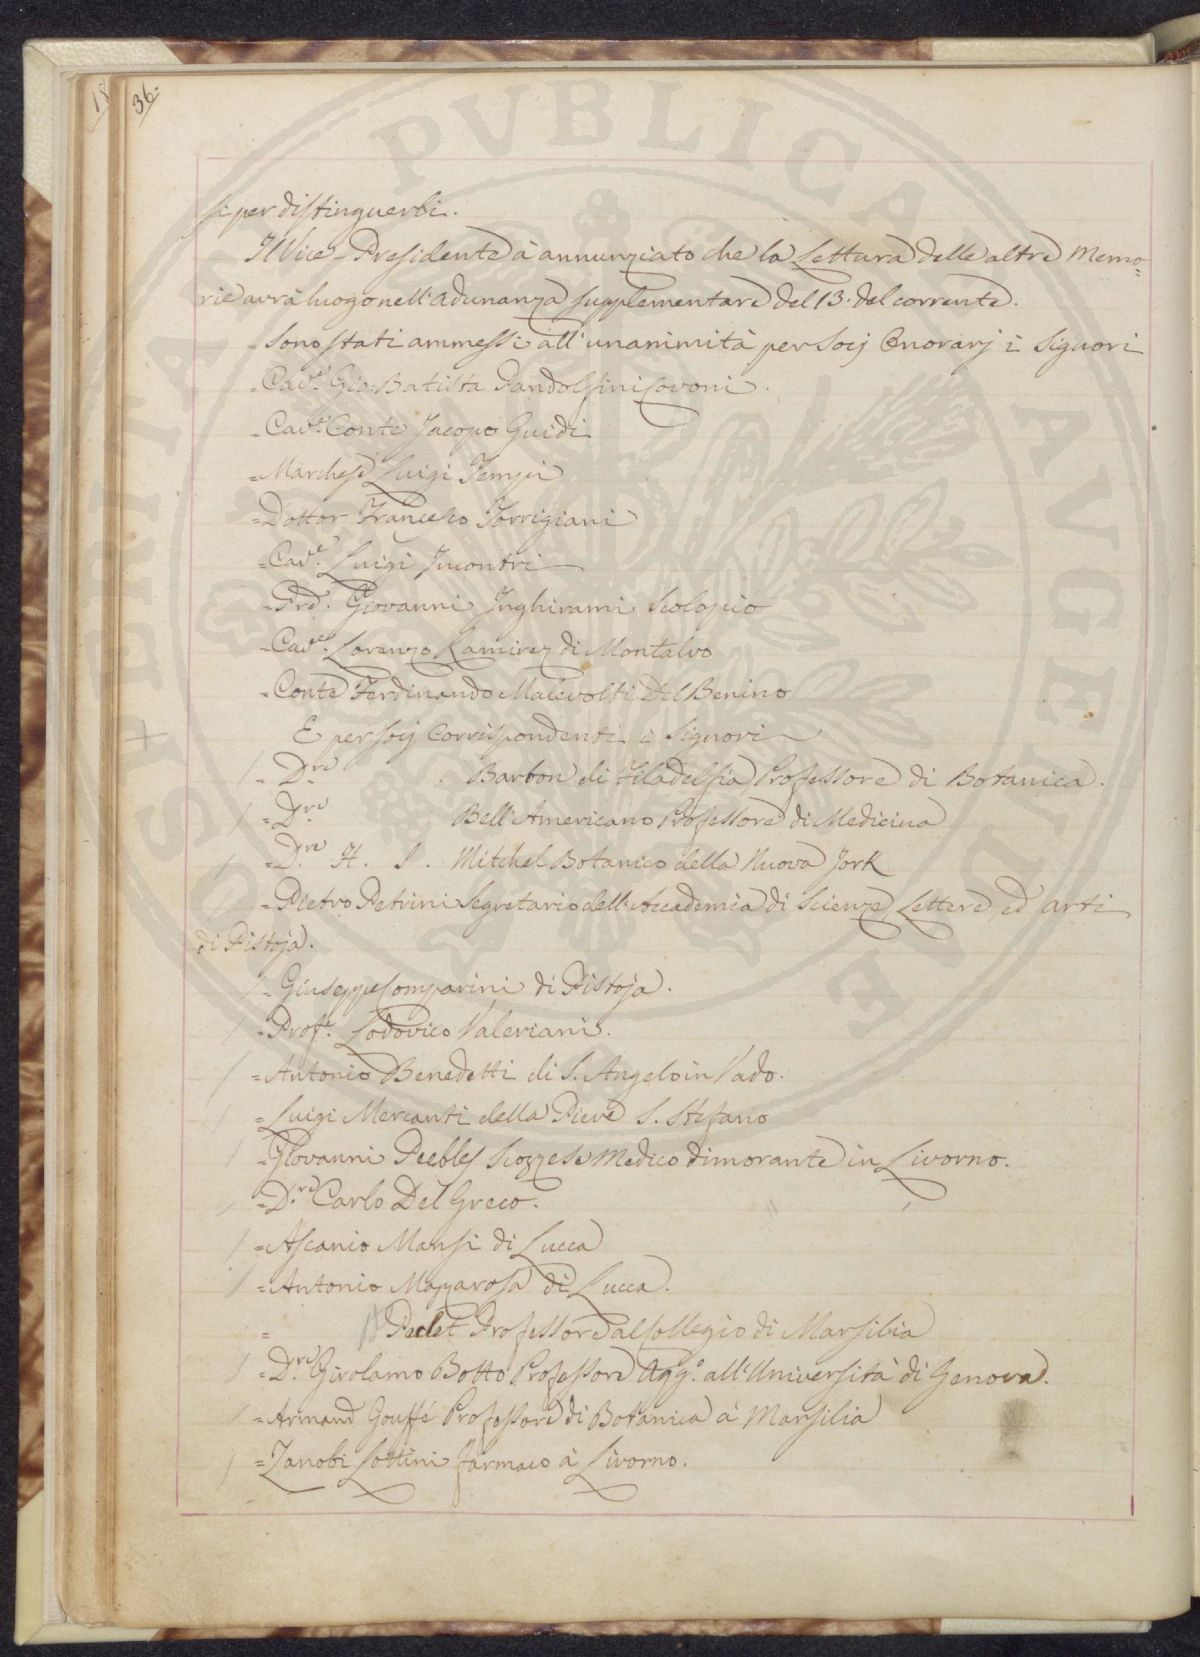 18
36.
si per distinguerbi.
Il Vice-Presidente à annunziato che la Lettura delle altre Memo=
rie avrà luogo nell'Adunanza supplementare del 13. del corrente.
Sono stati ammessi all'unanimità per Socj Onorarj i Signori
= Cav.e Gio: Batista Pandolfini Covoni.
= Cav.e Conte Jacopo Guidi
= Marchese Luigi Tempi
= Dottor Francesco Torrigiani
= Cav.e Luigi Incontri
= Prd. Giovanni Inghirami Scolopio
= Cav.e Lorenzo Ramirez di Montalvo
= Conte Ferdinando Malevolti Del Benino
E per Socj Corrispondenti i Signori
= D.re Barton di Filadelfia Professore di Botanica.
= D.re Bell'Americano Professore di Medicina
= D.re H. S. Mitchel Botanico della Nuova Jork
= Pietro Petrini Segretario dell'Accademia di Scienze, Lettere, ed arti
di Pistoja.
= Giuseppe Comparini di Pistoja.
= Prof.e Lodovico Valeriani.
= Antonio Benedetti di S. Angelo in Vado.
= Luigi Mercanti della Pieve S. Stefano
= Giovanni Peebles Scozzese Medico dimorante in Livorno.
= D.re Carlo Del Greco.
= Ascanio Mansi di Lucca
= Antonio Mazzarosa di Lucca.
= Peclet Professore al Collegio di Marsilia
= D.re Girolamo Botto Professore Agg.o all'Università di Genova.
= Armand Gouffé Professore di Botanica à Marsilia
= Zanobi Lottini farmaco à Livorno.
PVBLICAE
AVGE
VTILITATI